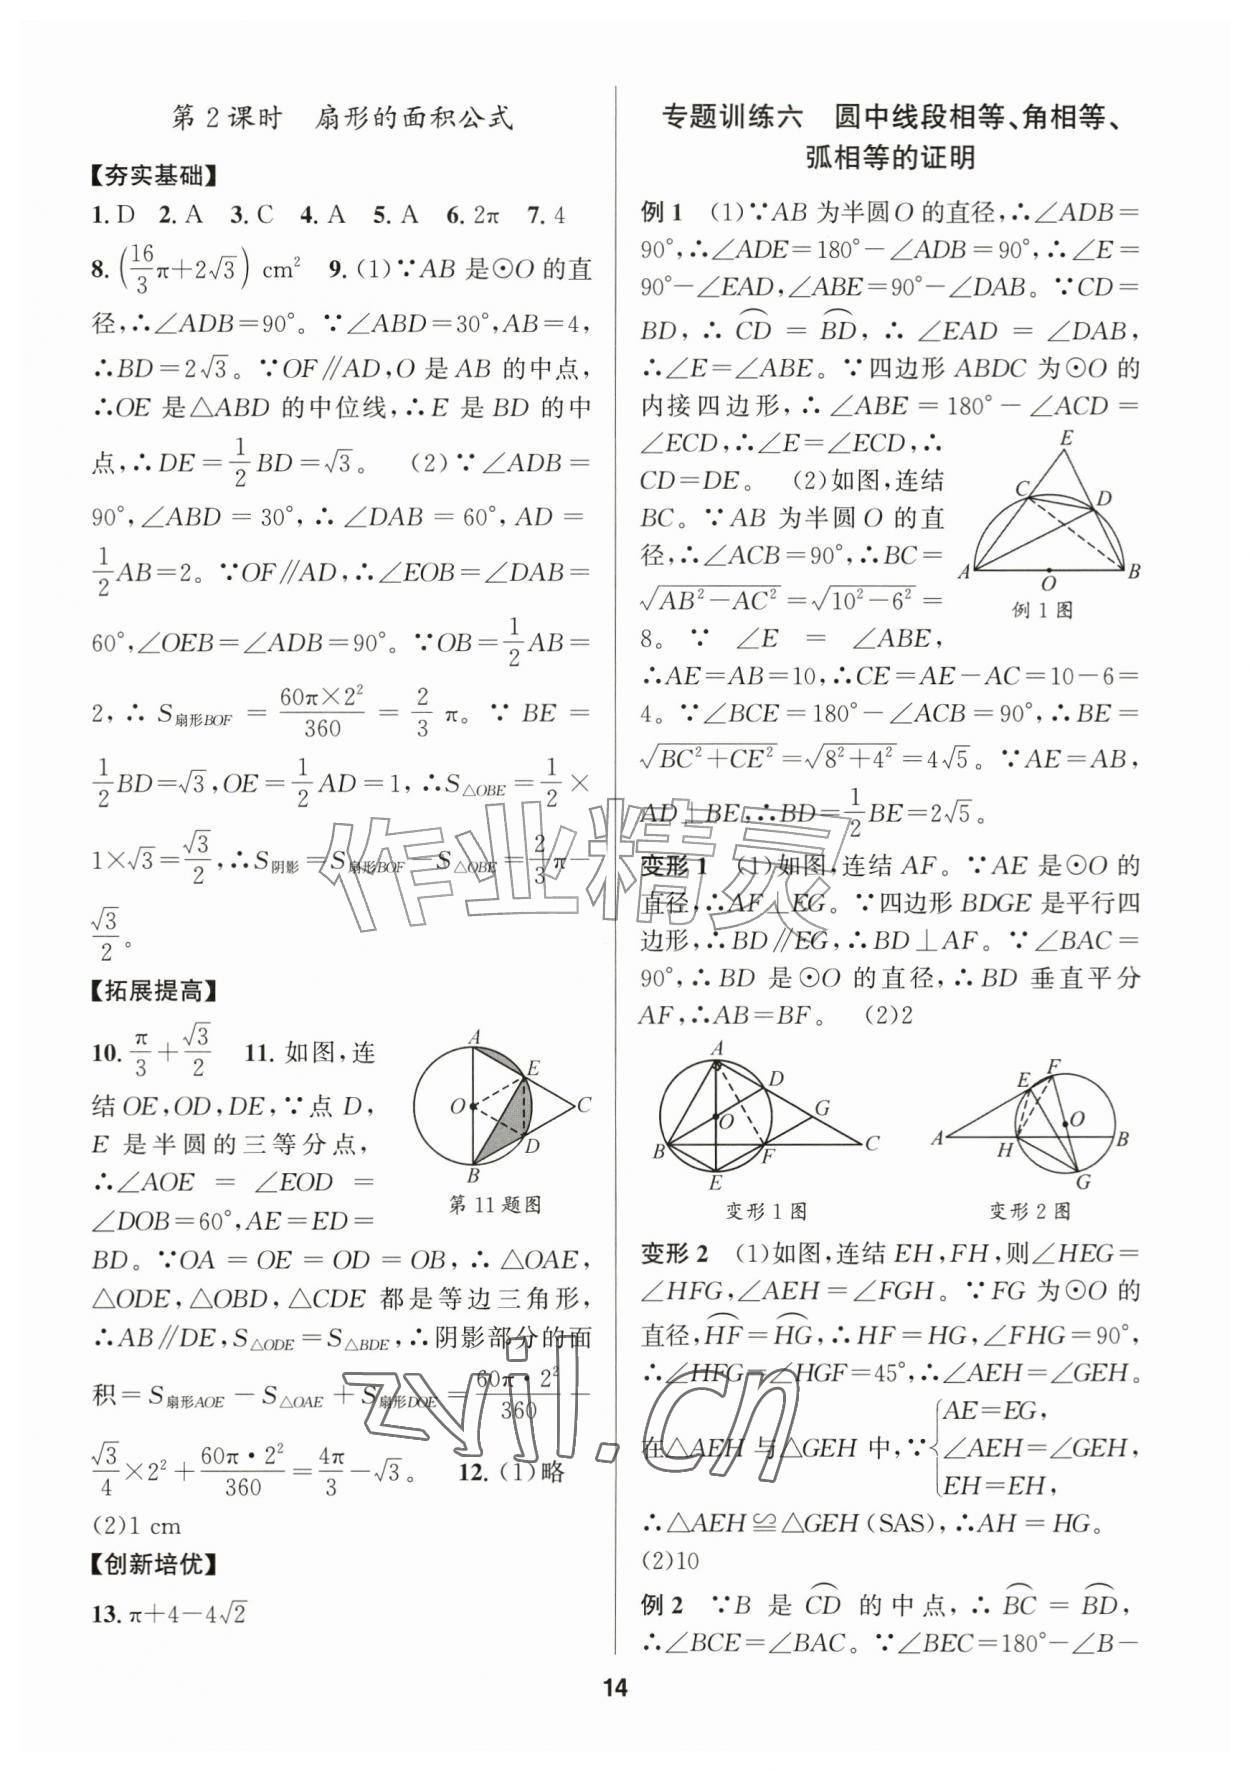 第2课时　扇形的面积公式
【夯实基础】
1. D　2. A　3. C　4. A　5. A　6. 2π　7. 4
8. (16/3π+2√3) cm²　9. (1)∵AB 是⊙O 的直
径,∴∠ADB=90°。∵∠ABD=30°,AB=4,
∴BD=2√3。∵OF∥AD,O 是 AB 的中点,
∴OE 是△ABD 的中位线,∴E 是 BD 的中
点,∴DE=1/2BD=√3。　(2)∵∠ADB=
90°,∠ABD=30°,∴∠DAB=60°,AD=
1/2AB=2。∵OF∥AD,∴∠EOB=∠DAB=
60°,∠OEB=∠ADB=90°。∵OB=1/2AB=
2,∴S扇形BOF=60π×2²/360=2/3π。∵BE=
1/2BD=√3,OE=1/2AD=1,∴S△OBE=1/2×
1×√3=√3/2,∴S阴影=S扇形BOF-S△OBE=2/3π-
√3/2。
【拓展提高】
10. π/3+√3/2　11. 如图,连
结 OE,OD,DE,∵点 D,
E 是半圆的三等分点,
∴∠AOE=∠EOD=
∠DOB=60°,AE=ED=
BD。∵OA=OE=OD=OB,∴△OAE,
△ODE,△OBD,△CDE 都是等边三角形,
∴AB∥DE,S△ODE=S△BDE,∴阴影部分的面
积=S扇形AOE-S△OAE+S扇形DOE=60π·2²/360-
√3/4×2²+60π·2²/360=4π/3-√3。　12. (1)略
(2)1 cm
【创新培优】
13. π+4-4√2
A
E
O
C
D
B
第11题图
专题训练六　圆中线段相等、角相等、
弧相等的证明
例1　(1)∵AB 为半圆 O 的直径,∴∠ADB=
90°,∴∠ADE=180°-∠ADB=90°,∴∠E=
90°-∠EAD,∠ABE=90°-∠DAB。∵CD=
BD,∴⌒CD=⌒BD,∴∠EAD=∠DAB,
∴∠E=∠ABE。∵四边形 ABDC 为⊙O 的
内接四边形,∴∠ABE=180°-∠ACD=
∠ECD,∴∠E=∠ECD,∴
CD=DE。　(2)如图,连结
BC。∵AB 为半圆 O 的直
径,∴∠ACB=90°,∴BC=
√(AB²-AC²)=√(10²-6²)=
8。∵∠E=∠ABE,
∴AE=AB=10,∴CE=AE-AC=10-6=
4。∵∠BCE=180°-∠ACB=90°,∴BE=
√(BC²+CE²)=√(8²+4²)=4√5。∵AE=AB,
AD⊥BE,∴BD=1/2BE=2√5。
E
C
D
A
O
B
例1图
变形1　(1)如图,连结 AF。∵AE 是⊙O 的
直径,∴AF⊥EG。∵四边形 BDGE 是平行四
边形,∴BD∥EG,∴BD⊥AF。∵∠BAC=
90°,∴BD 是⊙O 的直径,∴BD 垂直平分
AF,∴AB=BF。　(2)2
A
D
G
O
B
F
C
E
变形1图
F
E
O
A
H
B
G
变形2图
变形2　(1)如图,连结 EH,FH,则∠HEG=
∠HFG,∠AEH=∠FGH。∵FG 为⊙O 的
直径,⌒HF=⌒HG,∴HF=HG,∠FHG=90°,
∴∠HFG=∠HGF=45°,∴∠AEH=∠GEH。
在△AEH 与△GEH 中,∵{AE=EG,
∠AEH=∠GEH,
EH=EH,
∴△AEH≌△GEH(SAS),∴AH=HG。
(2)10
例2　∵B 是 ⌒CD 的中点,∴⌒BC=⌒BD,
∴∠BCE=∠BAC。∵∠BEC=180°-∠B-
14
作业精灵
zyjl.cn